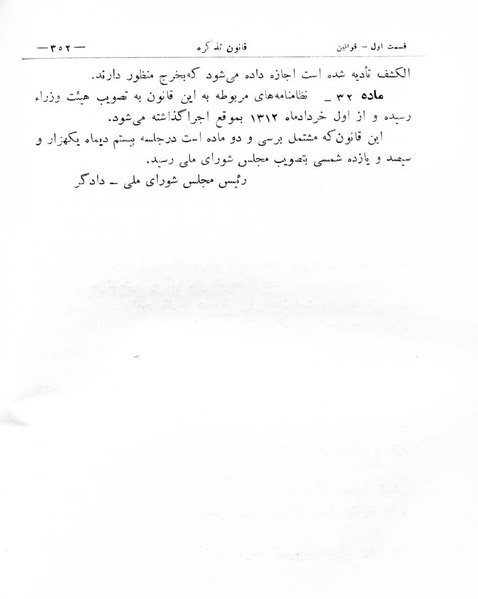 قسمت اول – قوانین
قانون تذکره
— ۳۵۲ —
الکشف تأدیه شده است اجازه داده می‌شود که بخرج منظور دارند.
ماده ۳۲ – نظامنامه‌های مربوطه به این قانون به تصویب هیئت وزراء
رسیده و از اول خردادماه ۱۳۱۲ بموقع اجرا گذاشته می‌شود.
این قانون که مشتمل برسی و دو ماده است درجلسه بیستم دیماه یکهزار و
سیصد و یازده شمسی بتصویب مجلس شورای ملی رسید.
رئیس مجلس شورای ملی – دادگر